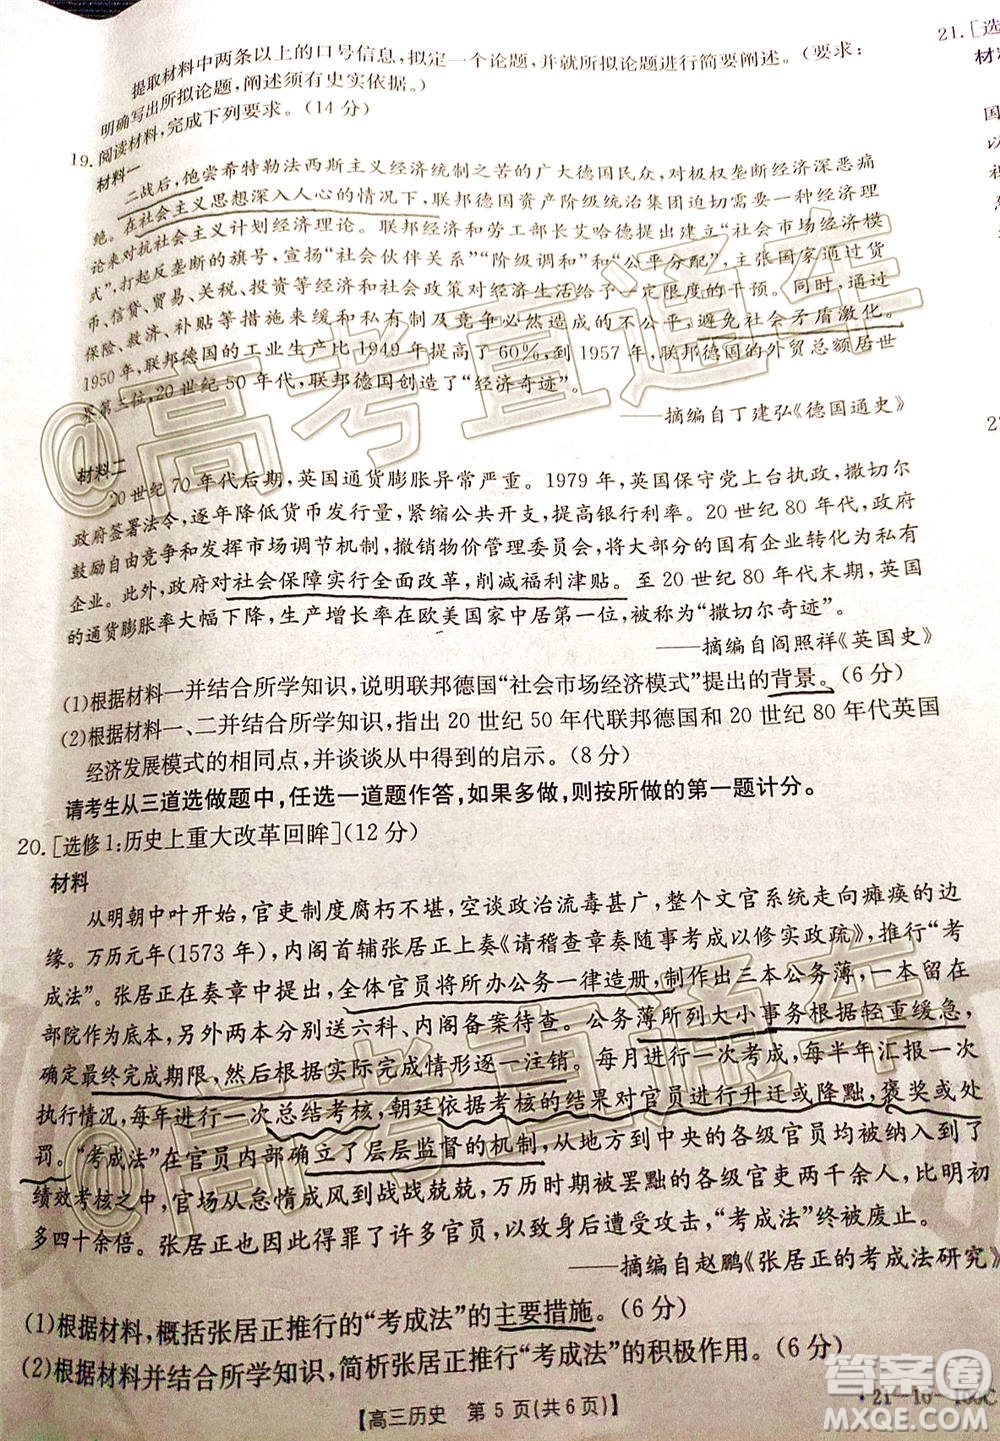 提取材料中两条以上的口号信息,拟定一个论题,并就所拟论题进行简要阐述。(要求:
明确写出所拟论题,阐述须有史实依据。)(14 分)
19. 阅读材料,完成下列要求。
材料一
二战后,饱尝希特勒法西斯主义经济统制之苦的广大德国民众,对极权垄断经济深恶痛
绝。在社会主义思想深入人心的情况下,联邦德国资产阶级统治集团迫切需要一种经济理
论来对抗社会主义计划经济理论。联邦经济和劳工部长艾哈德提出建立“社会市场经济模
式”,打起反垄断的旗号,宣扬“社会伙伴关系”“阶级调和”和“公平分配”,主张国家通过货
币、信贷、贸易、关税、投资等经济和社会政策对经济生活给予一定限度的干预。同时,通过
保险、救济、补贴等措施来缓和私有制及竞争必然造成的不公平,避免社会矛盾激化。
1950 年,联邦德国的工业生产比 1949 年提高了 60%,到 1957 年,联邦德国的外贸总额居世
界第三位,20 世纪 50 年代,联邦德国创造了“经济奇迹”。
——摘编自丁建弘《德国通史》
材料二
20 世纪 70 年代后期,英国通货膨胀异常严重。1979 年,英国保守党上台执政,撒切尔
政府签署法令,逐年降低货币发行量,紧缩公共开支,提高银行利率。20 世纪 80 年代,政府
鼓励自由竞争和发挥市场调节机制,撤销物价管理委员会,将大部分的国有企业转化为私有
企业。此外,政府对社会保障实行全面改革,削减福利津贴。至 20 世纪 80 年代末期,英国
的通货膨胀率大幅下降,生产增长率在欧美国家中居第一位,被称为“撒切尔奇迹”。
——摘编自阎照祥《英国史》
(1)根据材料一并结合所学知识,说明联邦德国“社会市场经济模式”提出的背景。(6 分)
(2)根据材料一、二并结合所学知识,指出 20 世纪 50 年代联邦德国和 20 世纪 80 年代英国
经济发展模式的相同点,并谈谈从中得到的启示。(8 分)
请考生从三道选做题中,任选一道题作答,如果多做,则按所做的第一题计分。
20. [选修 1:历史上重大改革回眸](12 分)
材料
从明朝中叶开始,官吏制度腐朽不堪,空谈政治流毒甚广,整个文官系统走向瘫痪的边
缘。万历元年(1573 年),内阁首辅张居正上奏《请稽查章奏随事考成以修实政疏》,推行“考
成法”。张居正在奏章中提出,全体官员将所办公务一律造册,制作出三本公务薄,一本留在
部院作为底本,另外两本分别送六科、内阁备案待查。公务薄所列大小事务根据轻重缓急,
确定最终完成期限,然后根据实际完成情形逐一注销。每月进行一次考成,每半年汇报一次
执行情况,每年进行一次总结考核,朝廷依据考核的结果对官员进行升迁或降黜,褒奖或处
罚。“考成法”在官员内部确立了层层监督的机制,从地方到中央的各级官员都被纳入
绩效考核之中,官场从怠惰成风到战战兢兢,万历时期被罢黜的各级官吏两千余人,比明初
多四十余倍。张居正也因此得罪了许多官员,以致身后遭受攻击,“考成法”终被废止。
——摘编自赵鹏《张居正的考成法研究》
(1)根据材料,概括张居正推行的“考成法”的主要措施。(6 分)
(2)根据材料并结合所学知识,简析张居正推行“考成法”的积极作用。(6 分)
【高三历史 第 5 页(共 6 页)】
·21-10-100C
21. [选
材料
国
@高考直通车
@高考直通车
答案圈
MXQE.COM